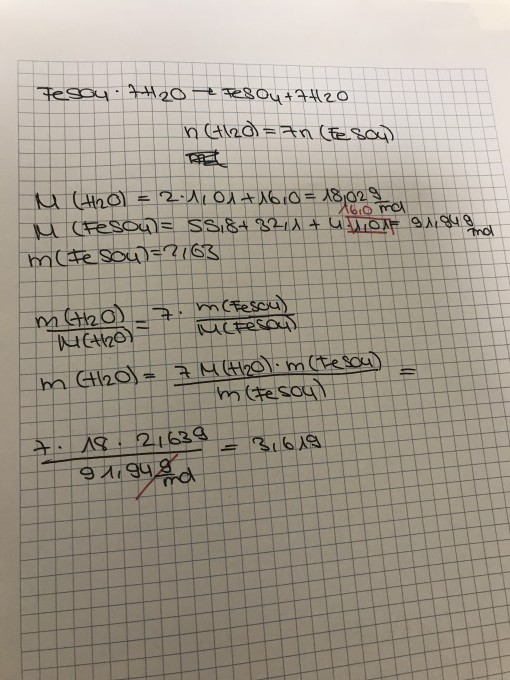 FeSO4 · 7H2O → FeSO4 + 7H2O
n(H2O) = 7n(FeSO4)
M(H2O) = 2·1,01+16,0 = 18,02 g/mol
16,0
M(FeSO4) = 55,8+32,1+4·1,01= 91,94 g/mol
m(FeSO4)=2,63
m(H2O)/M(H2O) = 7 · m(FeSO4)/M(FeSO4)
m(H2O) = 7 M(H2O)·m(FeSO4)/m(FeSO4) =
7 · 18 · 2,63g/91,94 g/mol = 3,61g